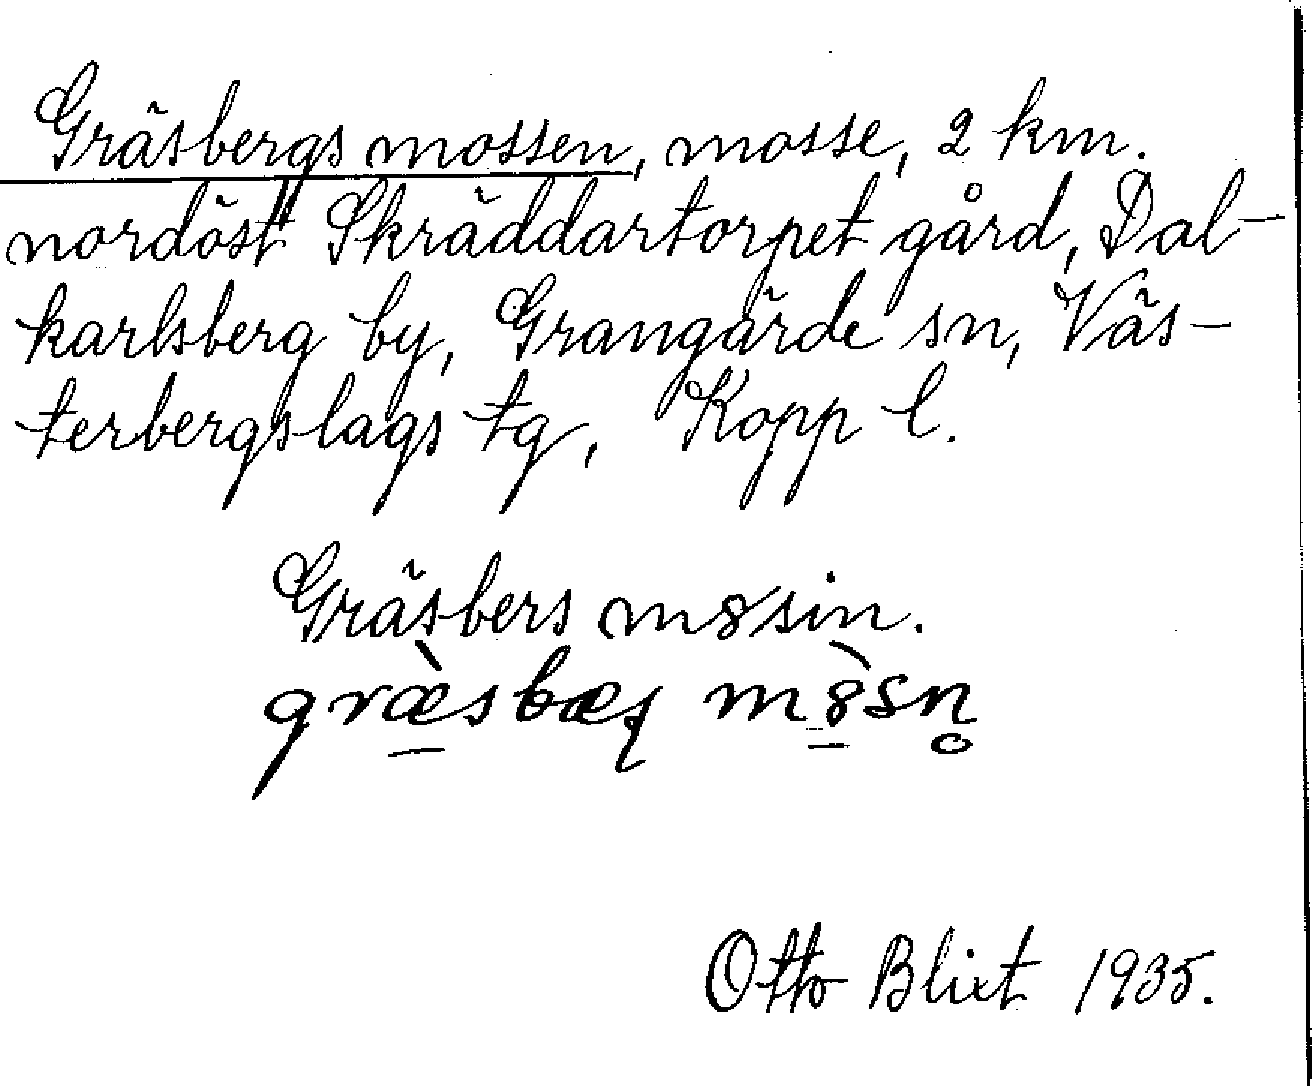 Gräsbergs mossen, mosse, 2 km.
nordöst Skräddartorpet gård, Dal-
karlsberg by, Grangärde sn, Väs-
terbergslags tg, Kopp l.
Gräsbers m8sin.
Otto Blixt 1935.